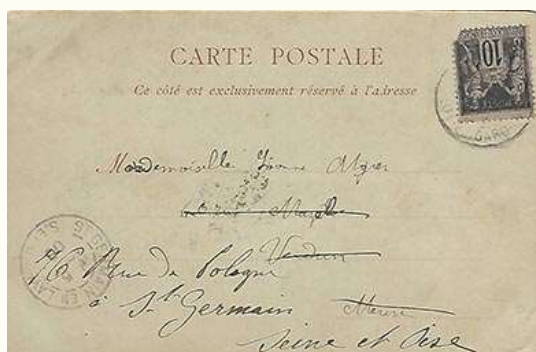 CARTE POSTALE
Ce côté est exclusivement réservé à l'adresse
10
GARD
Mademoiselle Yvonne Alger
Verdun
76 Rue de Pologne
à St Germain
Meuse
Seine et Oise